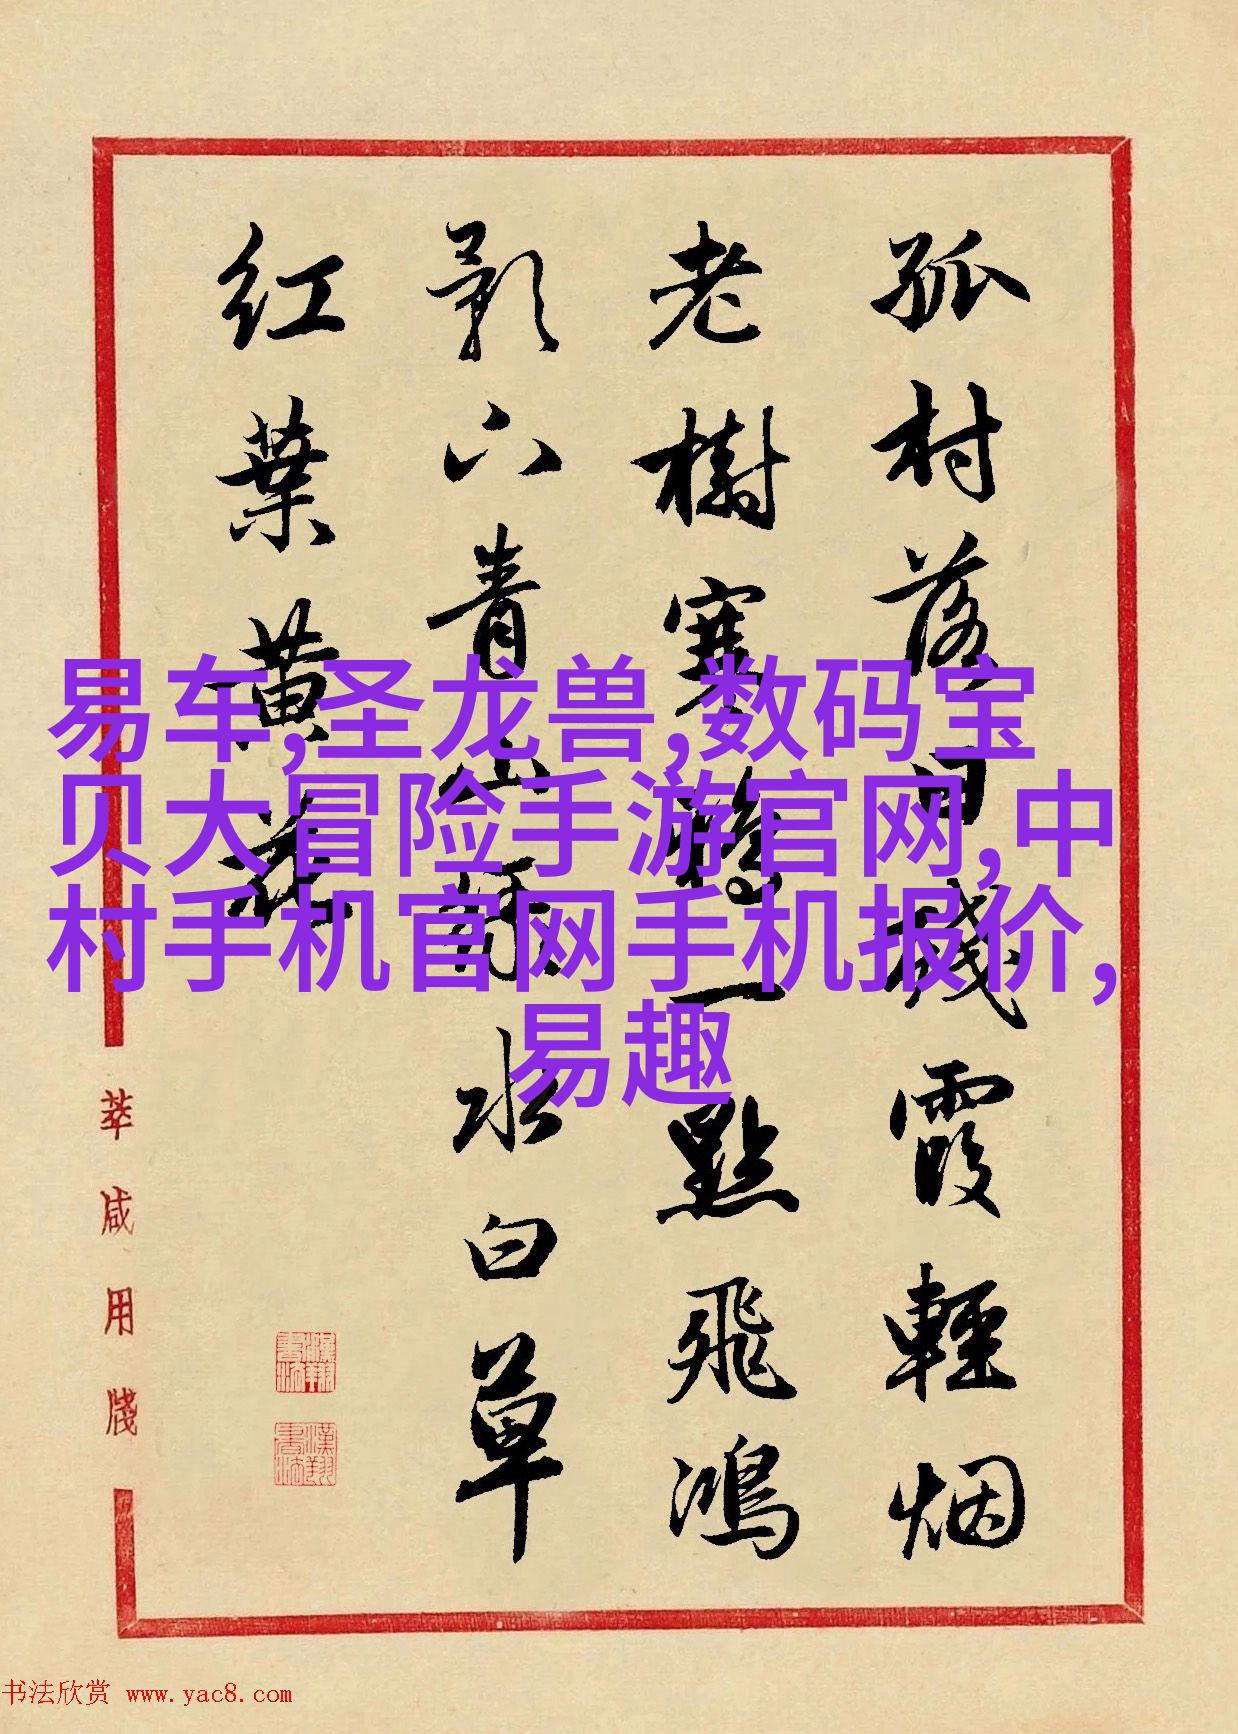 孤村落日残霞輕烟
老樹寒鴉一點飛鴻
影下青山绿水白草
红葉黄花
易车,圣龙兽,数码宝
贝大冒险手游官网,中
村手机官网手机报价,
易趣
萃咸用牋
书法欣赏 www.yac8.com